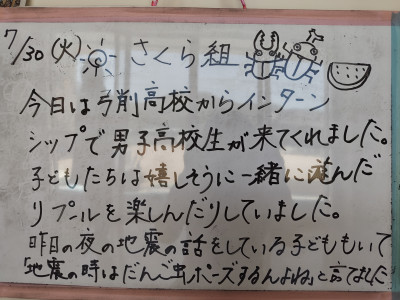 7/30(火) さくら組
今日は弓削高校からインターン
シップで男子高校生が来てくれました。
子どもたちは嬉しそうに一緒に遊んだ
リプールを楽しんだりしていました。
昨日の夜の地震の話をしている子どももいて
「地震の時はだんご虫ポーズするんよね」と言てました